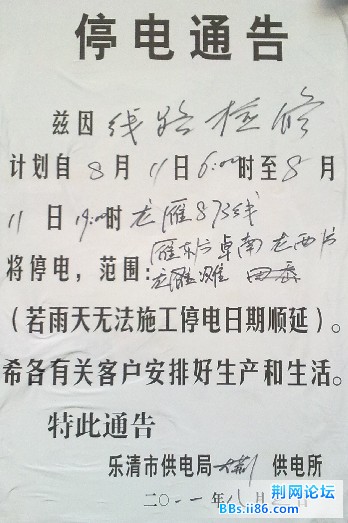 停电通告
兹因 线路检修
计划自 8 月 11 日 6:00 时至 8 月
11 日 19:00 时 龙雁873线
雁东片 卓南 龙西片
将停电，范围：
（若雨天无法施工停电日期顺延）。
希各有关客户安排好生产和生活。
特此通告
乐清市供电局 供电所
二〇一一年 八 月
荆网论坛
BBs.ii86.com